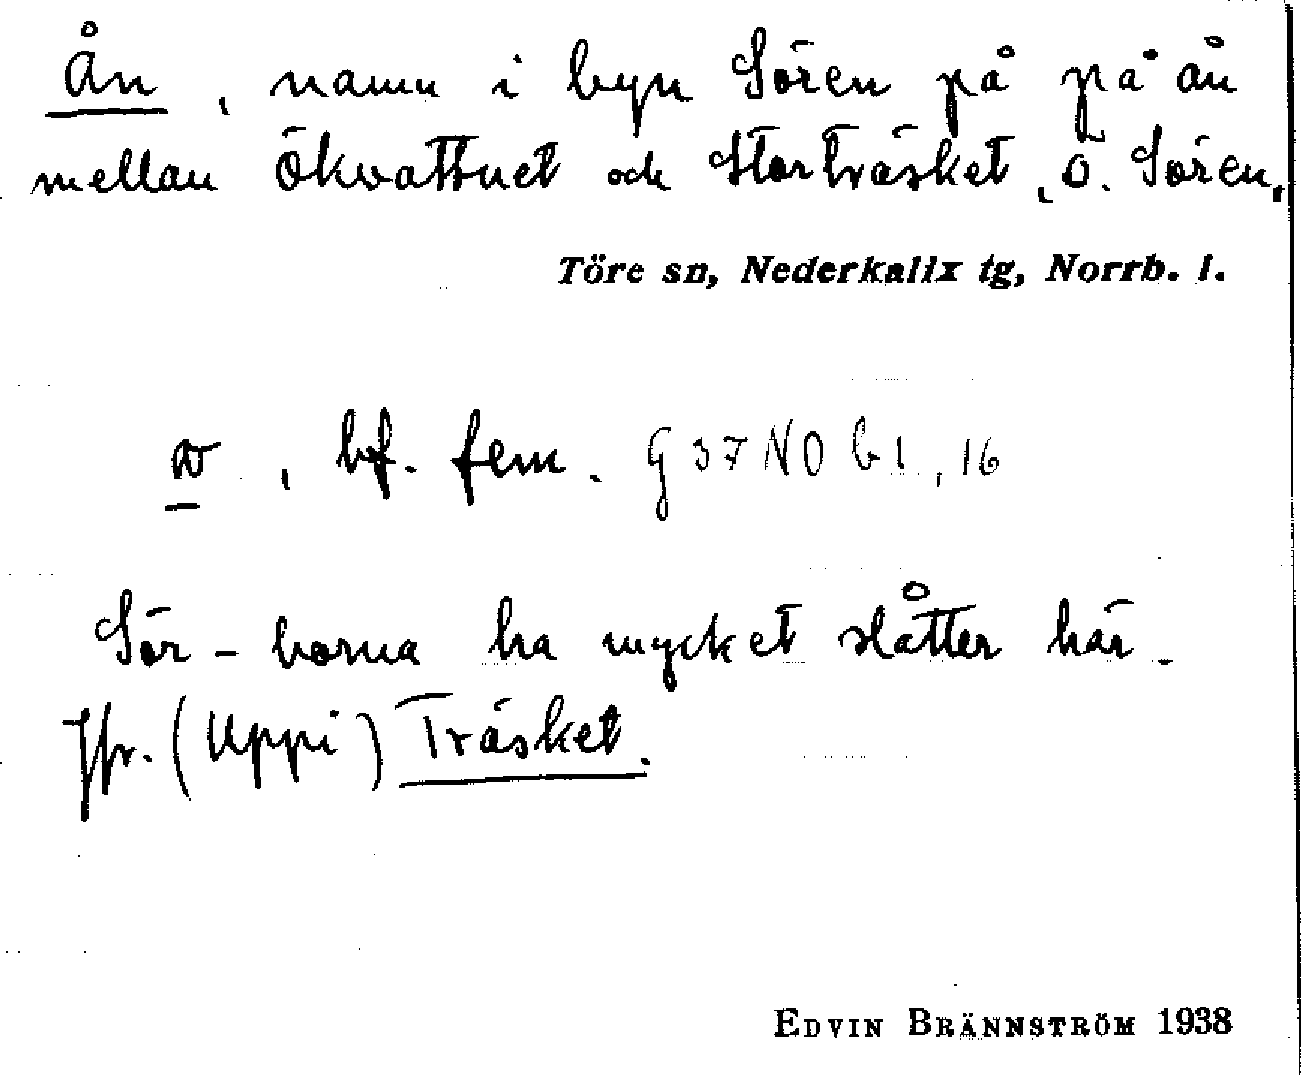 Ån, namn i byn Sören på på ån
mellan Ökvattnet och Storträsket, ö. Sören.
Töre sn, Nederkalix tg, Norrb. l.
, bf. fem. G 37 NO b1, 16
Sör-borna ha mycket slåtter här.
Jfr. (Uppi) Träsket.
EDVIN BRÄNNSTRÖM 1938